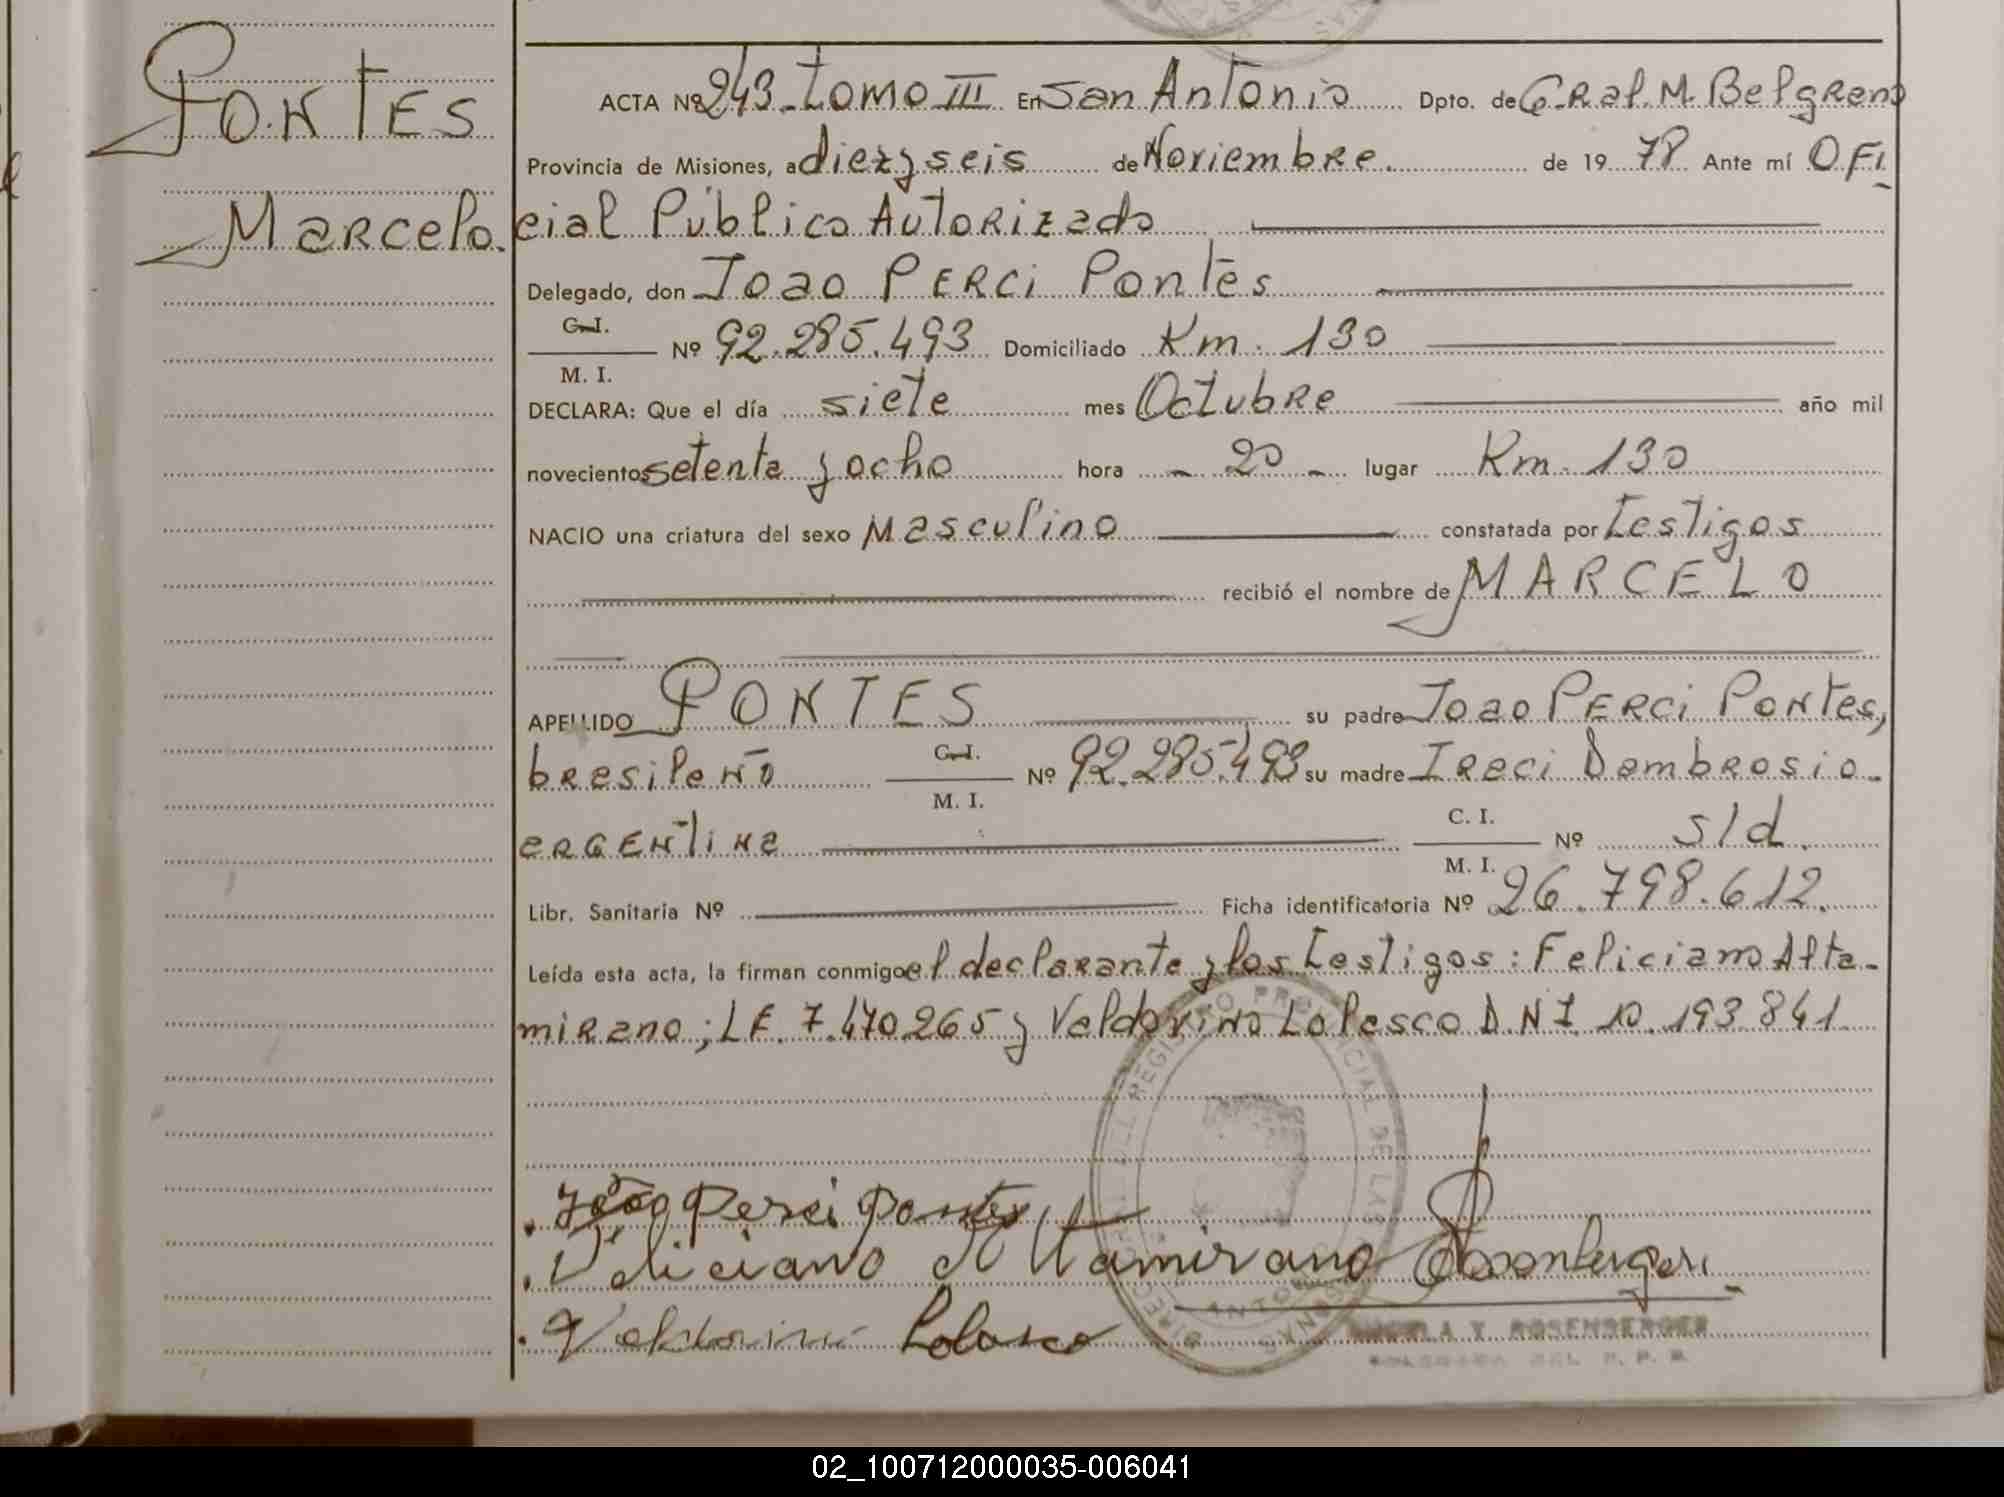 PONTES
Marcelo.
ACTA Nº 243 - tomo III En San Antonio Dpto. de G.Ral. M. Belgrano
Provincia de Misiones, a diez y seis de Noviembre. de 19 78 Ante mí OFI
cial Público Autorizado
Delegado, don Joao PERCi Pontes
C. I.
Nº 92.285.493 Domiciliado Km. 130
M. I.
DECLARA: Que el día siete mes Octubre año mil
novecientos setenta y ocho hora - 20 - lugar Km. 130
NACIO una criatura del sexo Masculino constatada por testigos
recibió el nombre de MARCELO
APELLIDO PONTES su padre Joao PERCi Pontes,
brasileño C. I. Nº 92.285.493 su madre Ireci Dambrosio -
M. I.
argentina C. I. Nº s/d.
M. I.
Libr. Sanitaria Nº Ficha identificatoria Nº 26.798.612.
Leída esta acta, la firman conmigo el declarante y los testigos: Feliciano Alta-
mirano; LE. 7.470.265 y Valdovino Lolasco D.N.I 10.193.841.
DIRECCION DEL REGISTRO PROVINCIAL DE LAS
João Perci Pontes
Feliciano Altamirano Rosenberger
Valdovino Lolasco
Y. ROSENBERGER
02_100712000035-006041